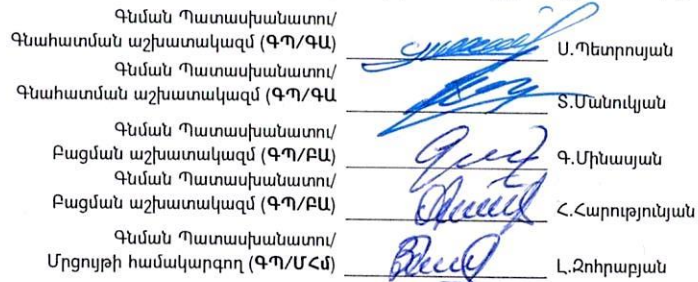 Գնման Պատասխանատու/
Գնահատման աշխատակազմ (ԳՊ/ԳԱ) Ս.Պետրոսյան
Գնման Պատասխանատու/
Գնահատման աշխատակազմ (ԳՊ/ԳԱ Տ.Մանուկյան
Գնման Պատասխանատու/
Բացման աշխատակազմ (ԳՊ/ԲԱ) Գ.Մինասյան
Գնման Պատասխանատու/
Բացման աշխատակազմ (ԳՊ/ԲԱ) Հ.Հարությունյան
Գնման Պատասխանատու/
Մրցույթի համակարգող (ԳՊ/ՄՀմ) Լ.Զոհրաբյան